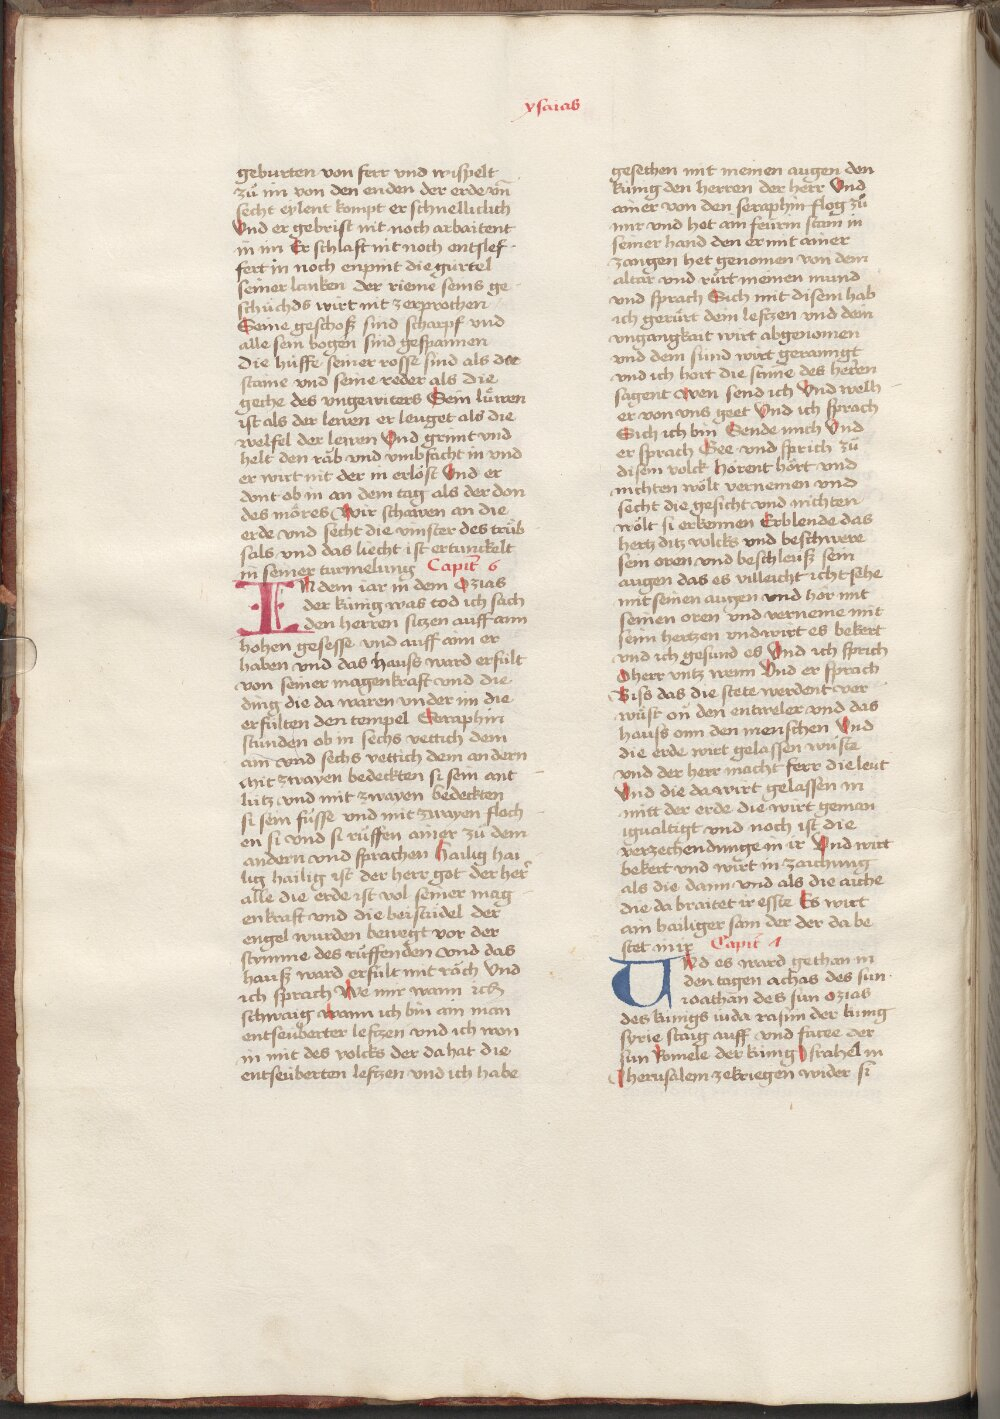 ysaias
geburten von ferr vnd wispelt
zů im von den enden der erde vñ
secht eylent kompt er schnelliclich
Vnd er gebrist nit noch arbaitent
in im Er schlaft nit noch entslef
fert in noch enpint die gürtel
seiner lanken der rieme seins ge
schüchds wirt nit zerprochen
Seine geschoß sind scharpf vnd
alle sein bogen sind gespannen
Die hüffe seiner rosse sind als die
staine vnd seine reder als die
geche des vngewiters Sein lüwen
ist als der lewen er leuget als die
welfel der lewen Vnd grint vnd
helt den rãb vnd vmbfächt in vnd
er wirt nit der in erlöst Vnd er
dont ob in an dem tag als der don
des möres Wir schawen an die
erde vnd secht die vinster des trüb
sals vnd das liecht ist ertunckelt
in seiner turmelung Capit̃ 6
IN dem iar in dem Ozias
der künig was tod ich sach
den herren siczen auff aim
hohen gesesse vnd auff aim er
haben vnd das hauss ward erfült
von seiner magenkraft vnd die
ding die da waren vnder im die
erfülten den tempel Seraphin
stůnden ob im sechs vettich dem
ain vnd sechs vettich dem andern
Mit zwayen bedeckten si sein ant
lütz vnd mit zwayen bedeckten
si sein füsse vnd mit zwayen floch
en si vnd si rüffen ainer zů dem
andern vnd sprachen Hailig hai
lig hailig ist der herr got der her̃
alle die erde ist vol seiner mag
enkraft vnd die beistudel der
engel wurden bewegt vor der
stymme des rüffenden vnd das
hauß ward erfült mit räch Vnd
ich sprach We mir wann ich
schwaig wann ich bin ain man
entseuberter lefczen vnd ich won
in mit des volcks der da hat die
entseuberten lefczen vnd ich habe
gesechen mit meinen augen den
künig den herren der herr Vnd
ainer von den seraphin flog zů
mir vnd hot ain feürin stain in
seiner hand den er mit ainer
zangen het genomen von dem
altar vnd rürt meinen mund
vnd sprach Sich mit disem hab
ich gerürt dein lefczen vnd dein
vngangkait wirt abgenomen
vnd dein sünd wirt gerainigt
vnd ich hort die stime des herren
sagent Wen send ich Vnd welh
er von vns geet Vnd ich sprach
Sich ich bin Sende mich Vnd
er sprach Gee vnd sprich zů
disem volck Hörent hört vnd
nichten wölt vernemen vnd
secht die gesicht vnd nichten
wölt si erkennen Erblende das
hertz ditz volcks vnd beschwere
sein oren vnd beschleuß sein
augen das es villeicht icht sehe
mit seinen augen vnd hör mit
seinen oren vnd verneme mit
seim hertzen vnd wirt es bekert
vnd ich gesund es Vnd ich sprich
O herr vntz wenn Vnd er sprach
Biss das die stete werdent ver
wüst on den entweler vnd das
hauss onn den menschen Vnd
die erde wirt gelassen wüste
vnd der herr macht ferr die leut
Vnd die da wirt gelassen in
mitt der erde die wirt geman
igualtigt vnd noch ist die
verzechendunge in ir Vnd wirt
bekert vnd wirt in zaichung
als die dann vnd als die aiche
die da braitet ir esste Es wirt
ain hailiger sam der der da be
stet in ir Capit̃ 7
UNd es ward gethan in
den tagen achas des sun
ioathan des sun ozias
des künigs iuda rasim der künig
syrie staig auff vnd facee der
sun Romele der künig Israhel in
Iherusalem zekriegen wider si